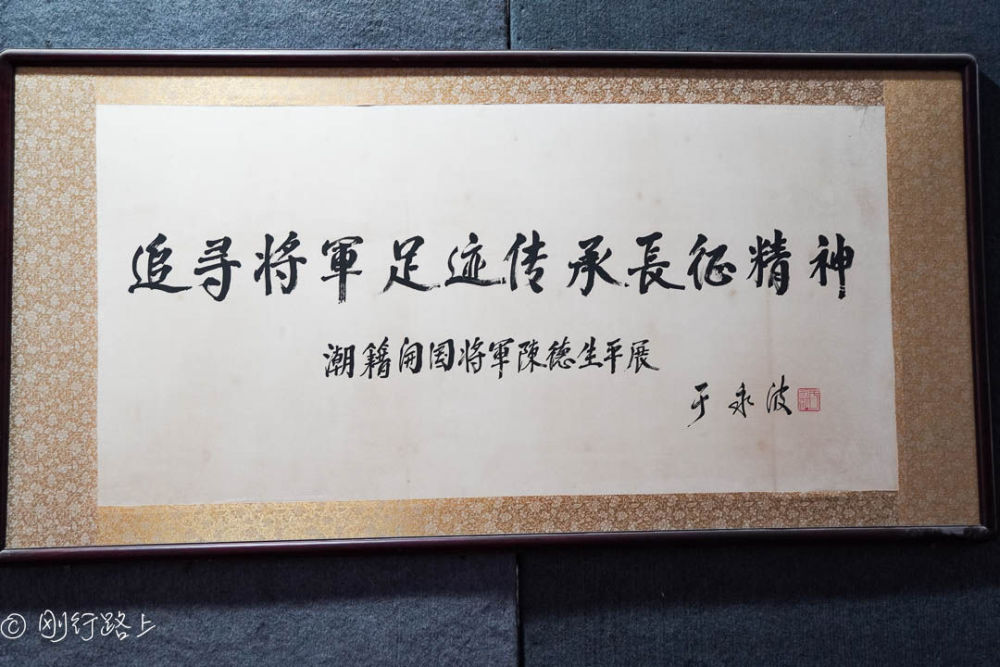 追寻将軍足迹传承長征精神
潮籍開国将軍陳德生平展
于永波
© 刚行路上